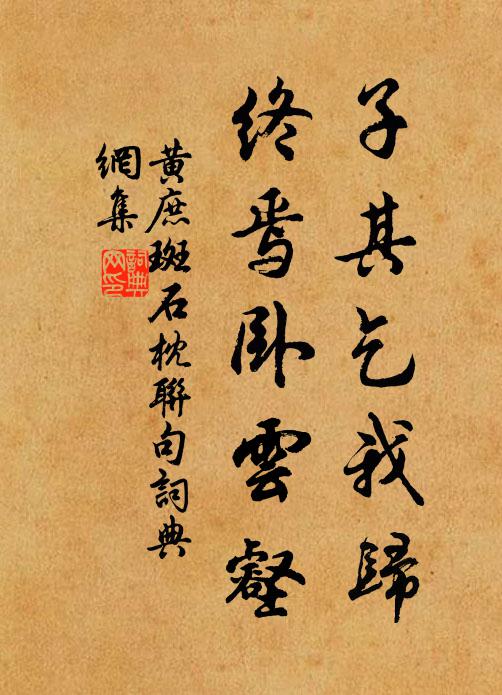 子其乞我歸
終焉臥雲壑
黃庶斑石枕聯句詞典
網集
詞典
网印